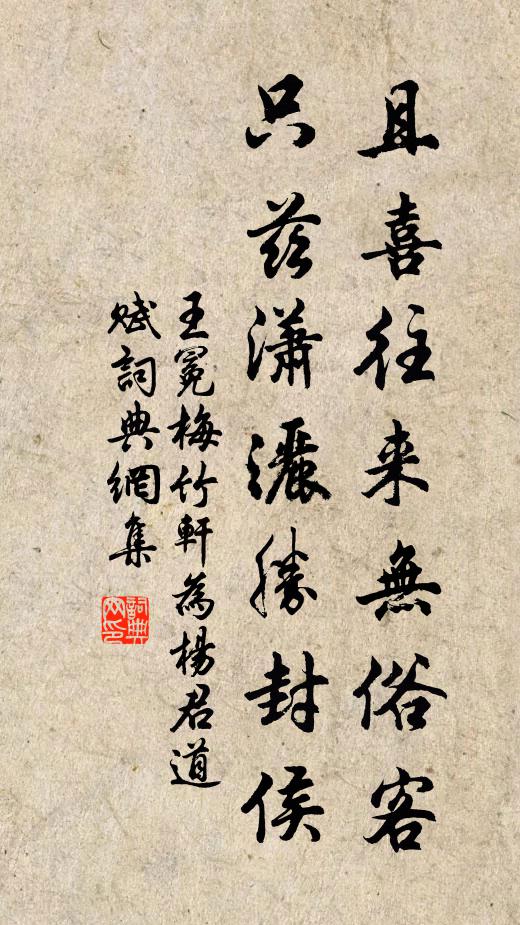 且喜往来無俗客
只茲瀟灑勝封侯
王冕梅竹軒為楊君道
賦詞典網集
詞典网印